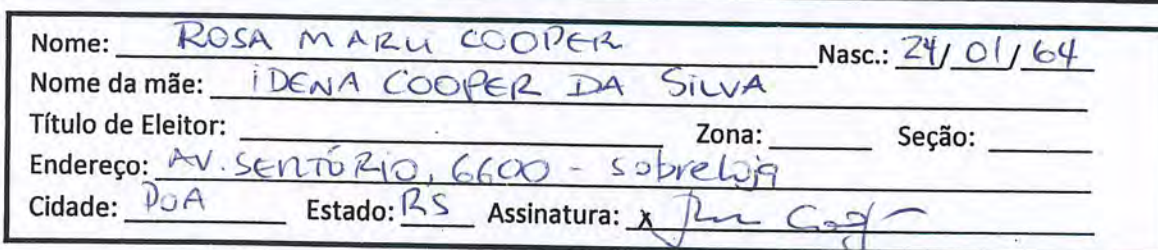 Nome: ROSA MARLI COOPER Nasc.: 24/01/64
Nome da mãe: IDENA COOPER DA SILVA
Título de Eleitor: Zona: Seção:
Endereço: AV. SERTÓRIO, 6600 - Sobreloja
Cidade: POA Estado: RS Assinatura: x